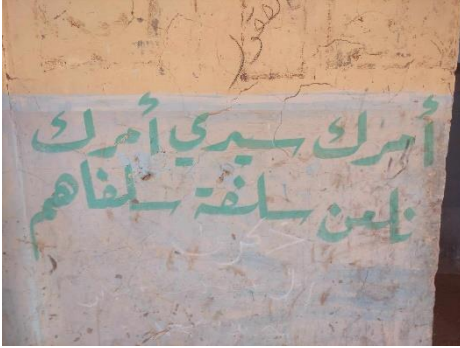 أمرك سيدي أمرك
نلعن سلفة سلفاهم